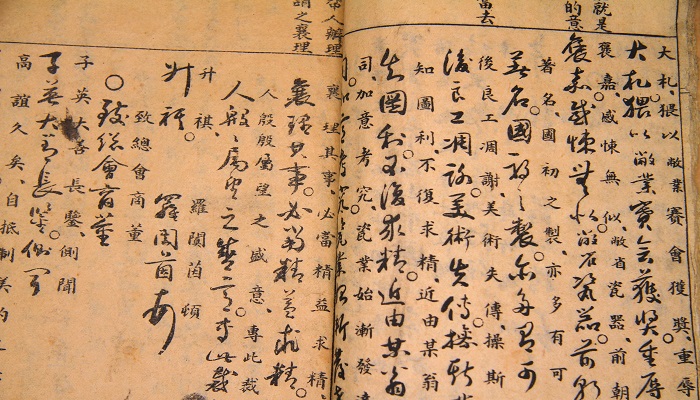 就是
的意
當去
大札猥以敝業賽會獲獎重辱
大札。猥以敝業賽會獲獎。重辱
褒嘉感悚無似敝省瓷器前朝
褒嘉感悚無似。敝省瓷器前朝
著名國初之製亦多有可
著名國初之製。亦多有可
後良工凋謝美術失傳操斯
後良工凋謝。美術失傳。操斯
知圖利不復求精近由某翁
知圖利不復求精。近由某翁
司加意考究瓷業始漸發達
人辦理
謂之襄理
襄理其事必當精益求精
襄理其事。必當精益求精。
人殷殷屬望之盛意專此裁
人殷殷屬望之盛意。專此裁
升祺 羅閬茵頓
升祺 羅閬茵頓
致總會商董
○致總會商董
子英大善長鑒側聞
子英大善長鑒。側聞
高誼久矣自抵制美約